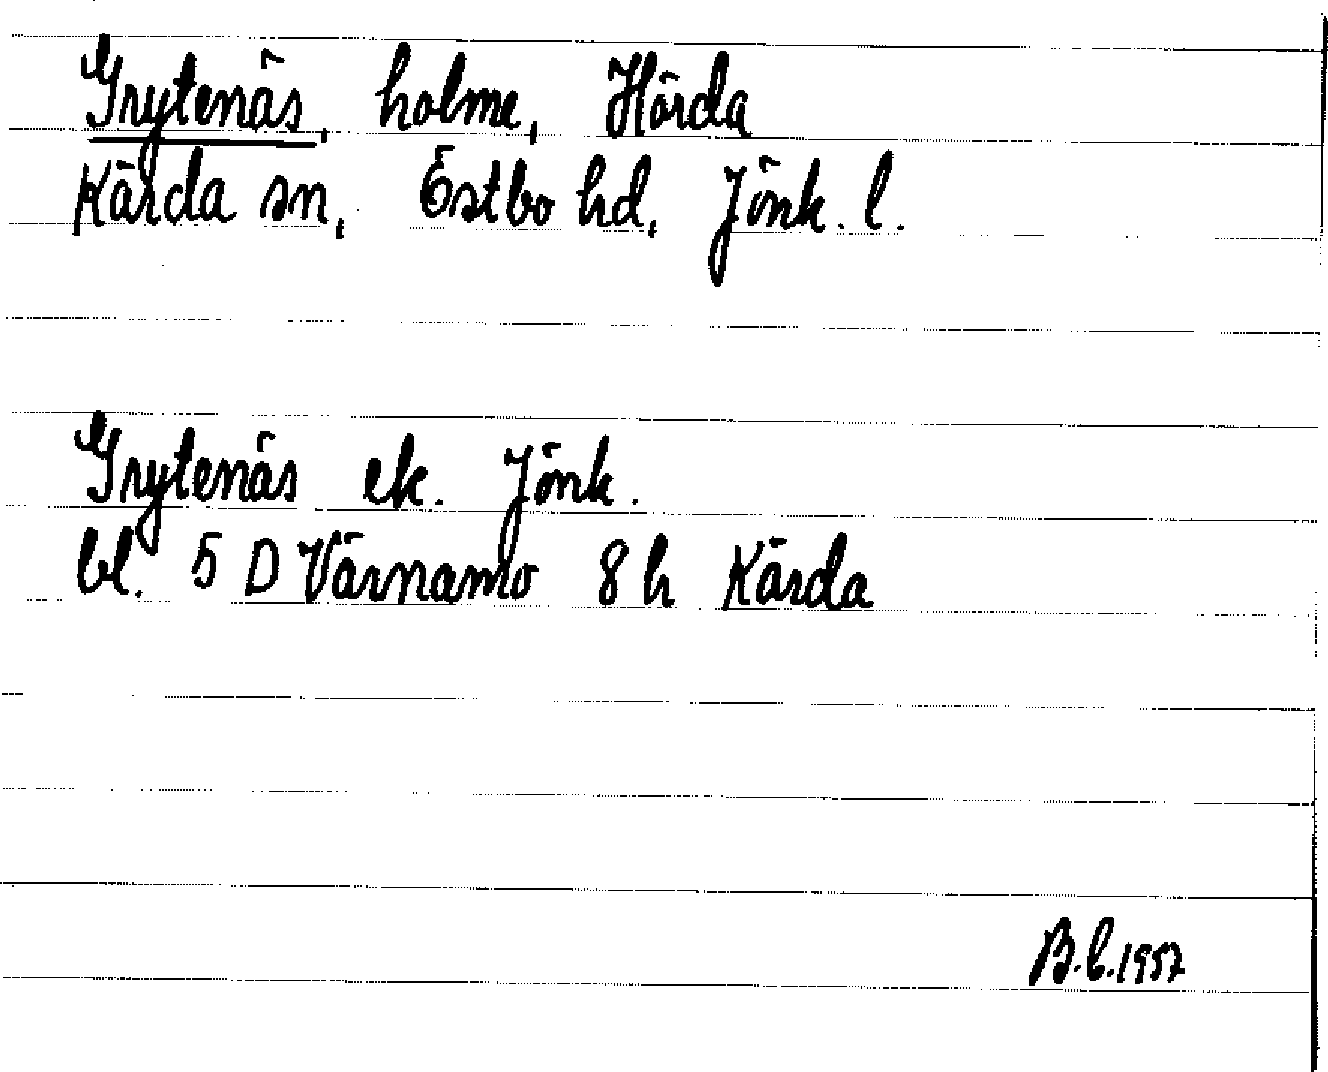 Grytenäs, holme, Hörda
Kärda sn, Östbo hd, Jönk. l.
Grytenäs ek. Jönk.
bl. 5 D Värnamo 8 h Kärda
B.C. 1957